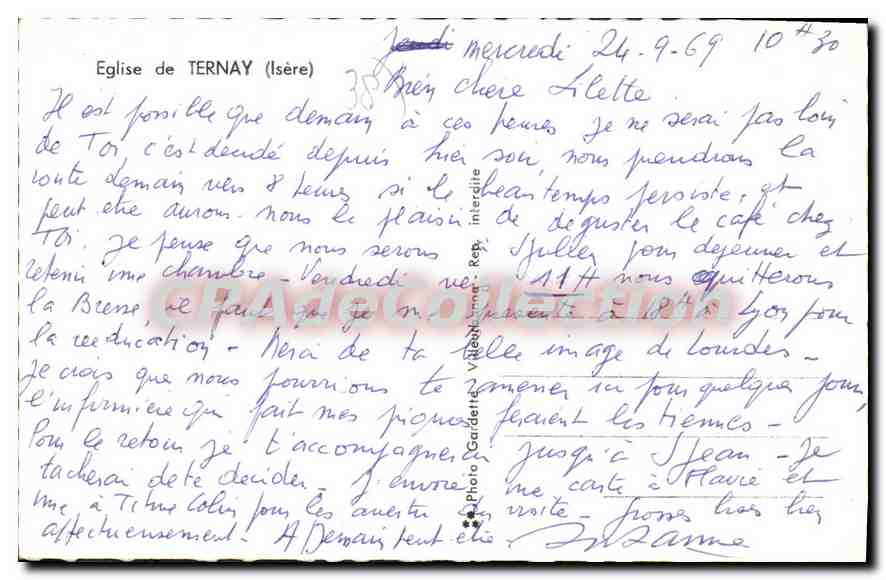 Jeudi mercredi 24-9-69 10H30
Eglise de TERNAY (Isère)
Bien chère Lilette
Il est possible que demain à ces heures je ne serai pas loin
de Toi c'est décidé depuis hier soir, nous prendrons la
route demain vers 8 heures si le beau temps persiste, et
peut être aurons-nous le plaisir de déguster le café chez
Toi. Je pense que nous serons à pour déjeuner et
retenir une chambre - Vendredi vers 11H nous quitterons
la Bresse, il faut que je me présente à 18H à Lyon pour
la rééducation - Merci de ta belle image de Lourdes -
Je crois que nous pourrions te ramener ici pour quelques jours,
l'infirmière qui fait mes piqures feraient les tiennes -
Pour le retour je t'accompagnerai jusqu'à St Jean - Je
tacherai de te décider - J'envoie une carte à Flavie et
une à Titine Colin pour les avertir du visite - grosses bises bien
affectueusement - A Demain peut-être - Suzanne
Photo Gardette - Villeurbanne - Rep. interdite
CPAdeCollection